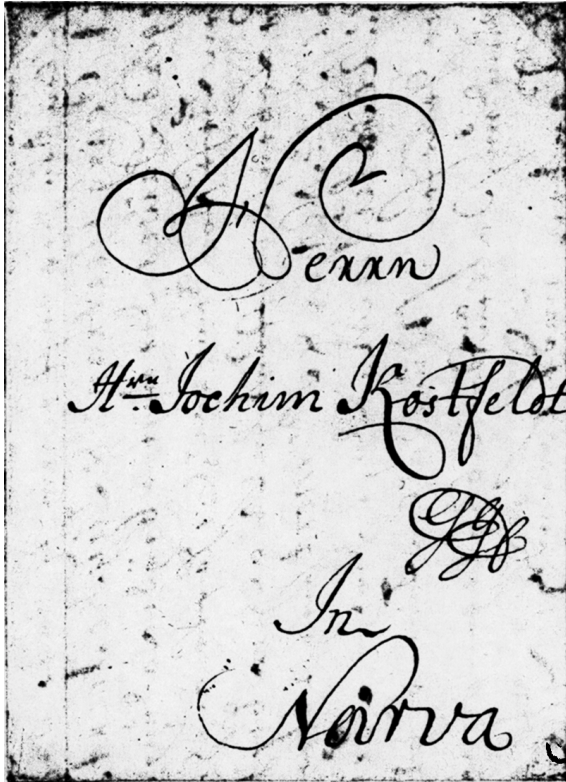 Herrn
Hrn Jochim Rostfeldt
In
Narva